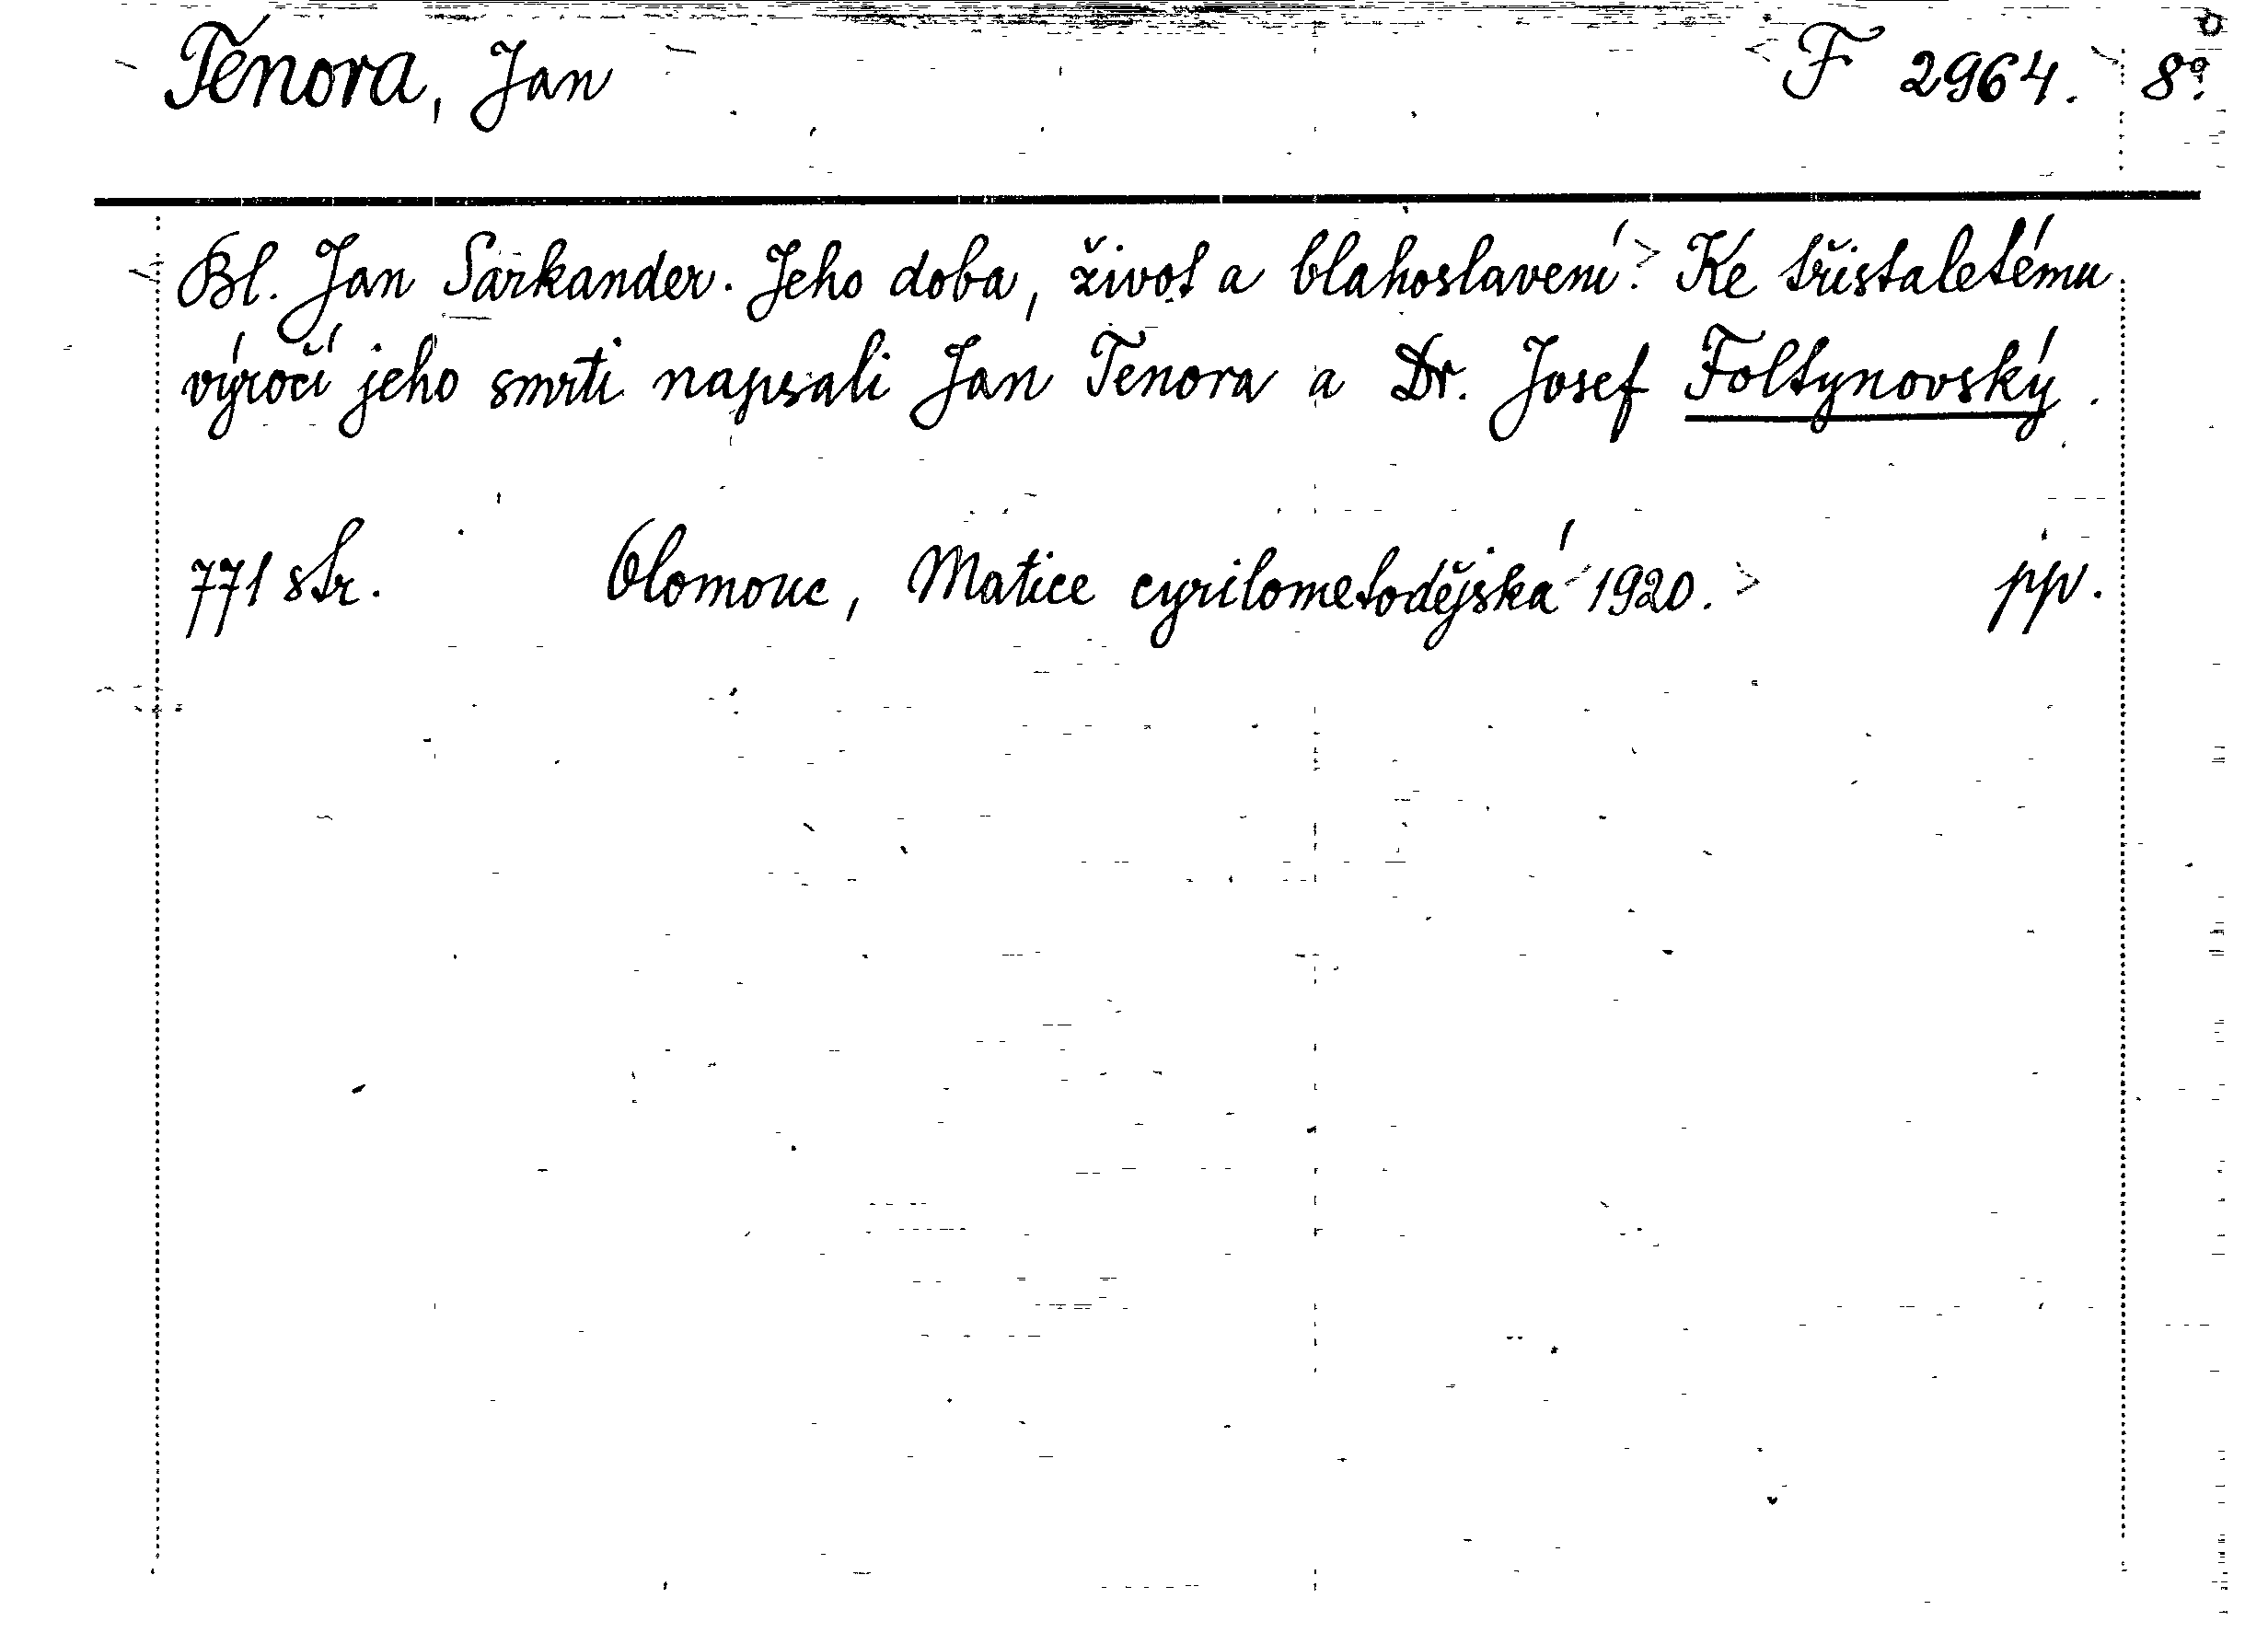 Tenora, Jan F 2964. 8º.
Bl. Jan Sarkander. Jeho doba, život a blahoslavení. Ke třistaletému
výročí jeho smrti napsali Jan Tenora a Dr. Josef Foltynovský.
771 str. Olomouc, Matice cyrilometodějská 1920. pp.